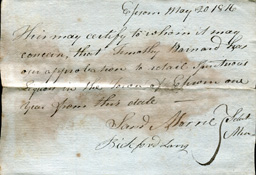 Epsom May 20 1816
This may certify to whom it may
concern, that Timothy Barnard has
our approbation to retail Spirituous
liquors in the town of Epsom one
year from this date —
Saml Morrel
Bickford Lang
Select
Men